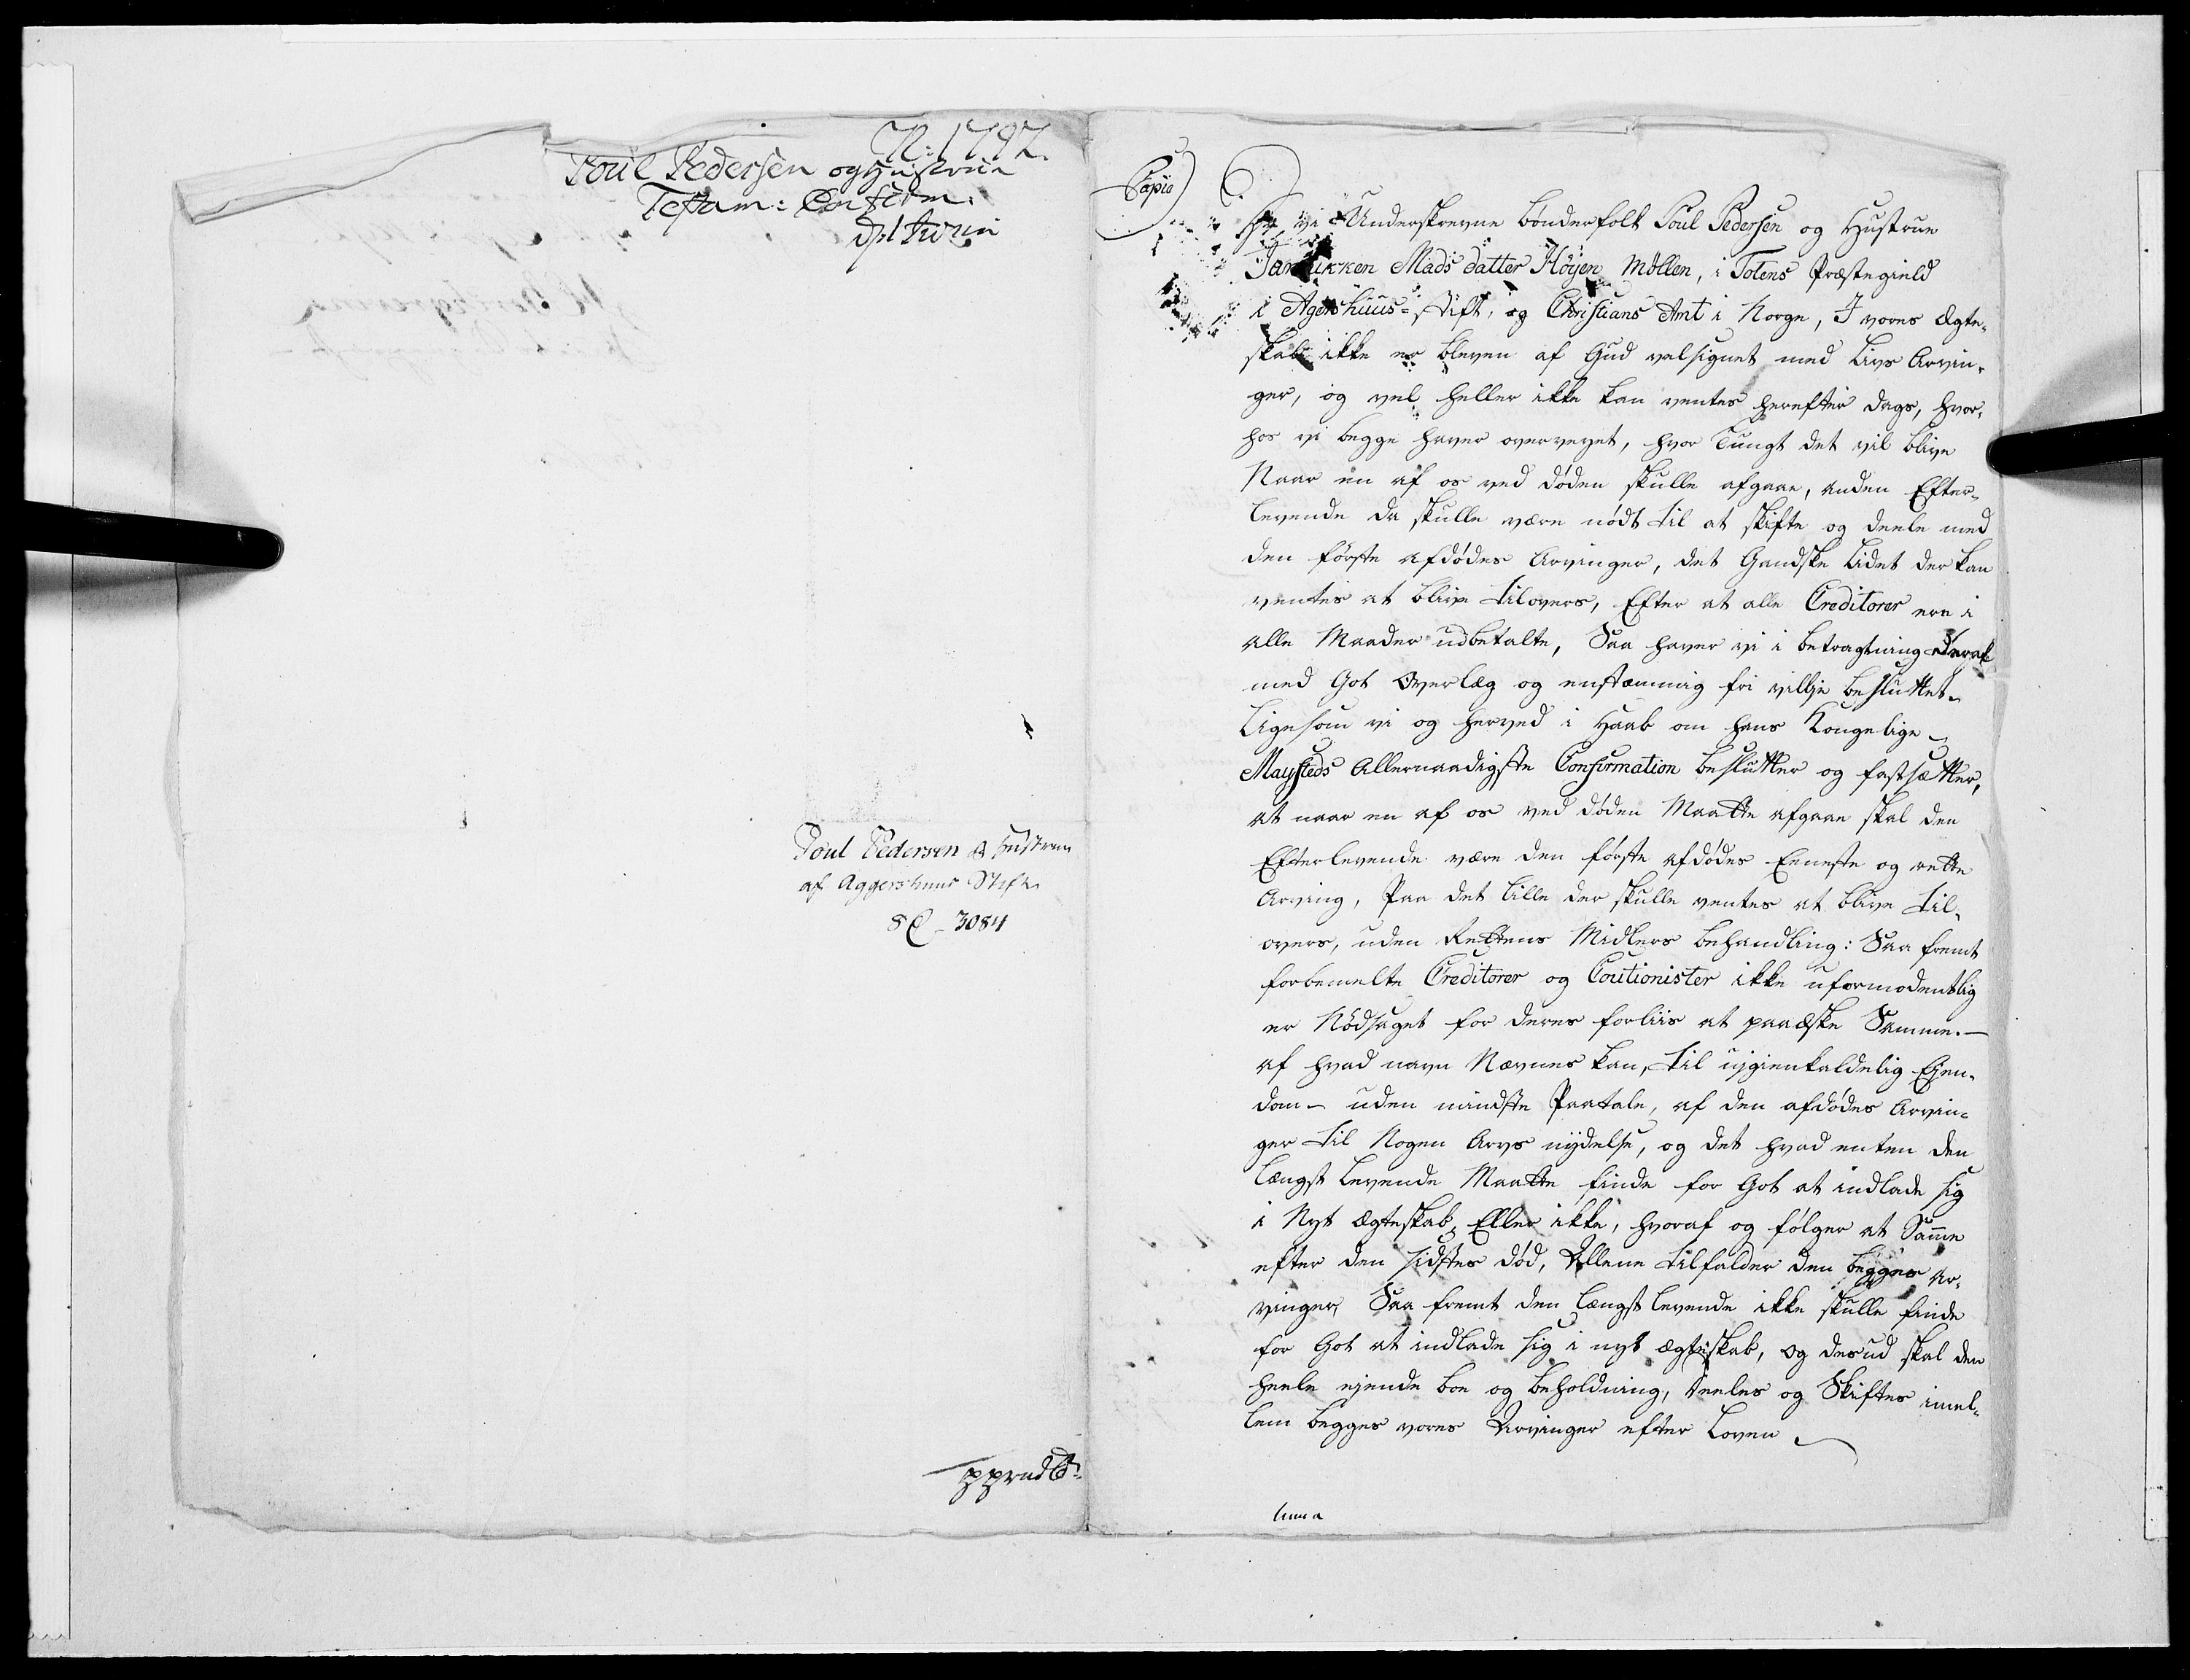 N: 1792.
Poul Pedersen og Hustrue
Testam: Confirm:
Poul Pedersen & Hustrue
af Aggershuus Stift.
3084
Copia
vi Underskrevne bønderfolk Poul Pedersen og Hustrue
Mads datter Höyen Møllen, i Totens Præstegield
i Agershuus-Stift, og Christians Amt i Norge, I vores Ægte-
skab ikke er bleven af Gud velsignet med Livs Arvin-
ger, og vel heller ikke kan ventes herefter dags, hvor-
hos vi begge haver overveyet, hvor Tungt det vil blive
Naar en af os ved døden skulle afgaae, anden Efter-
levende da skulle være nødt til at skifte og deele med
den første afdødes Arvinger, det Gandske Lidet der kan
ventes at blive tilovers, Efter at alle Creditorer ere i
alle Maader udbetalte, Saa haver vi i betragtning deraf
med Got Overlæg og enstemmig fri villie besluttet
Ligesom vi og herved i Haab om hans Kongelige
Maysteds Allernaadigste Confirmation beslutter og fastsætter,
at naar en af os ved døden Maatte afgaae skal den
Efterlevende være den første afdødes Eeneste og rette
Arving, Paa det lille der skulle ventes at blive til-
overs, uden Rettens Midlers behandling: Saa fremt
forbemelte Creditorer og Coutionister ikke uformodentlig
er Nødsaget for deres forliis at paaæske Samme.—
af hvad navn Nævnes kan, til uigienkaldelig Ejen-
dom — uden mindste Paatale, af den afdødes Arvin-
ger til Nogen Arvs nydelse, og det hvad enten den
Længst levende Maatte finde for Got at indlade sig
i Nyt Ægteskab, Eller ikke, hvoraf og følger at Samme
efter den sidstes død, Allene tilfalder den begges Ar-
vinger, Saa fremt den Længst levende ikke skulle finde
for Got at indlade sig i nyt ægteskab, og desud skal den
heele ejende boe og beholdning, deeles og Skiftes imel-
lem begges vores Arvinger efter Loven